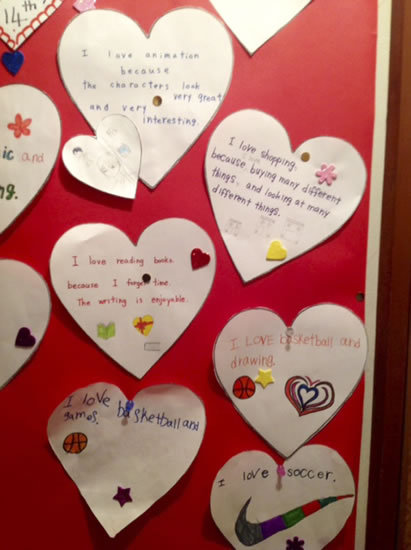 14th
I love animation
because
the characters look
very great
and very
interesting.
I love shopping,
because, buying many different
things, and looking at many
different things.
ic and
ng.
I love reading books.
because I forget time.
The writing is enjoyable.
I LOVE basketball and
drawing.
I love basketball and
games.
I love soccer.